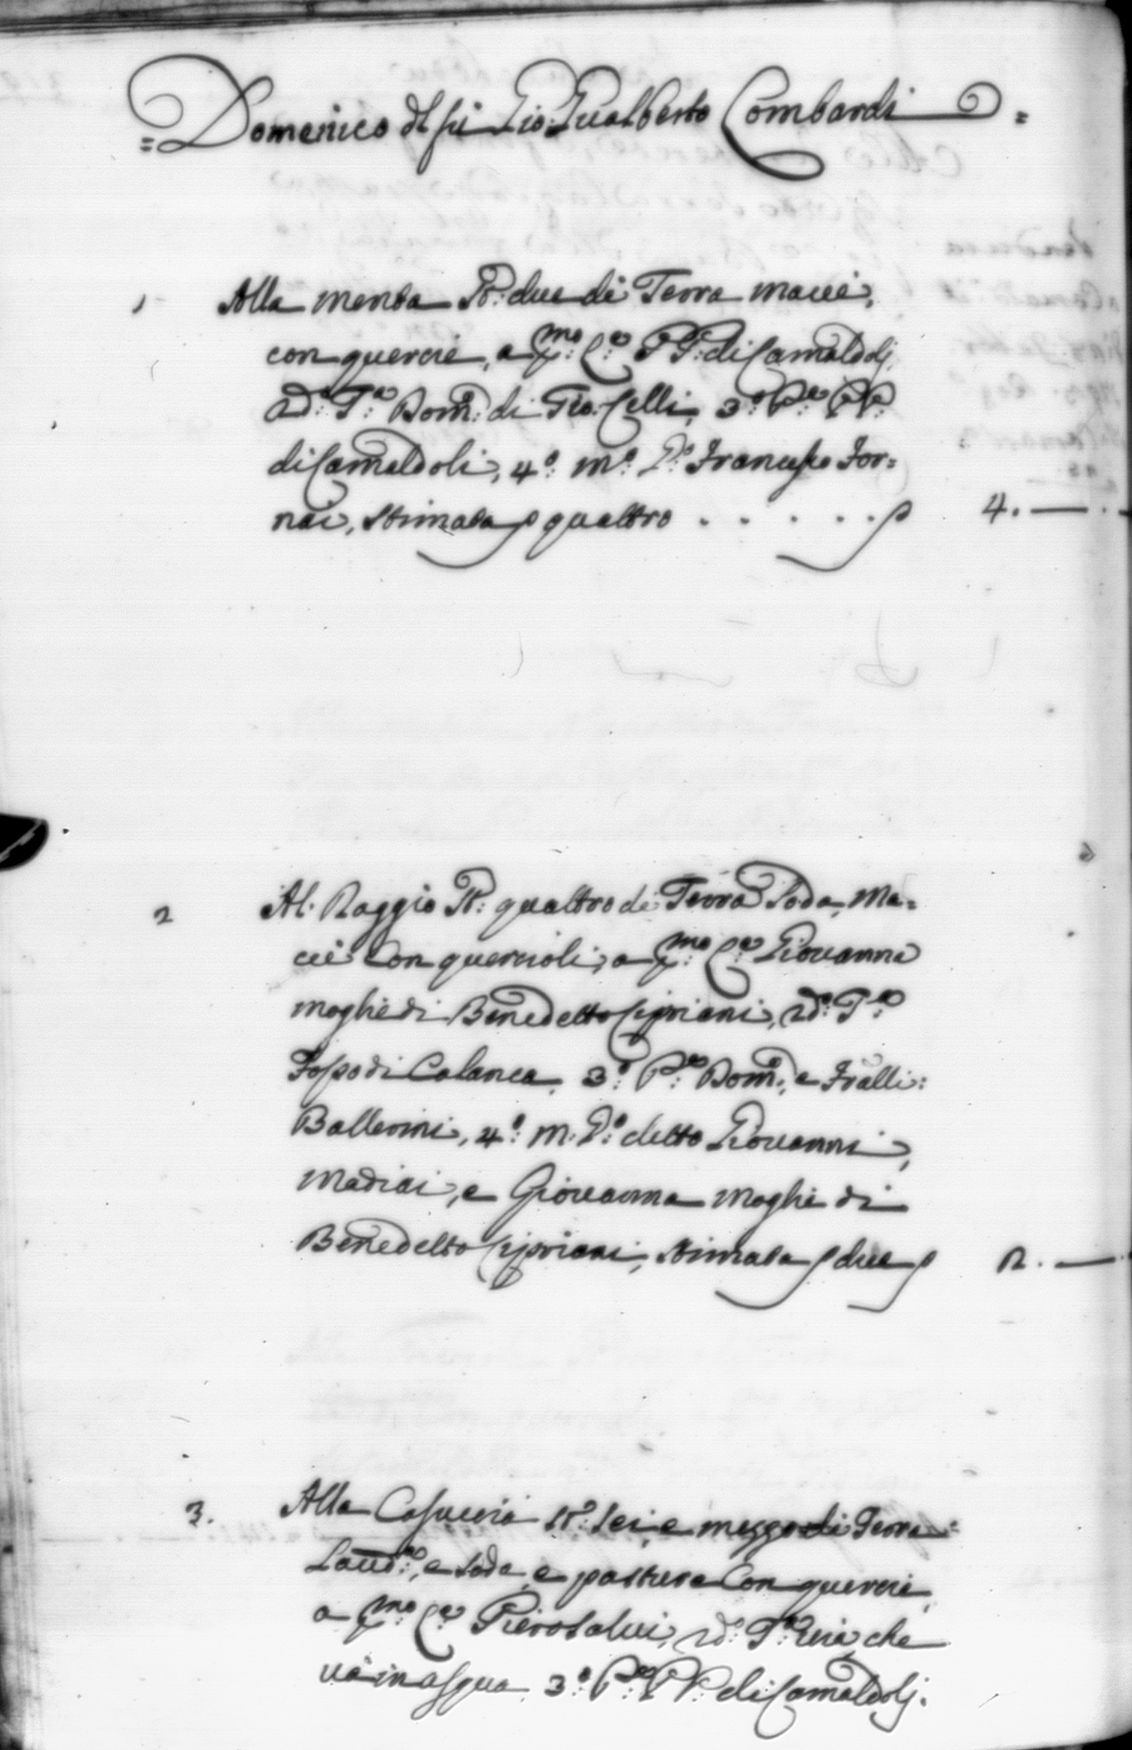 = Domenico dl fù Gio: Gualberto Lombardi =
1 Alla menta St: due di Terra macie,
con quercie, a p.mo C.o PP: di Camaldoli,
2d.o T.o Dom.o di Gio: Celli, 3.o P.o PP.
di Camaldoli, 4.o m.o D.o Francesco For=
nai, stimata quattro . . . . . 4. —
2 Al Raggio St: quattro di Terra Soda, Ma=
cie con quercioli, a p.mo C.o Giovanna
moghe di Benedetto Cipriani, 2d.o T.o
Fosso di Calanca, 3.o P.o Dom.o, e Fralli:
Ballerini, 4.o m. D.o detto Giovanni,
madiai, e Giovanna moghe di
Benedetto Cipriani, stimata due 2. —
3. Alla Casuccia St.o Sei, e mezzo di Terra
Laud.a, e soda, e pastura Con quercie,
a p.mo C.o Piero Salvi, 2d.o T.o via, che
và in asqua 3.o P.o PP: di Camaldoli.